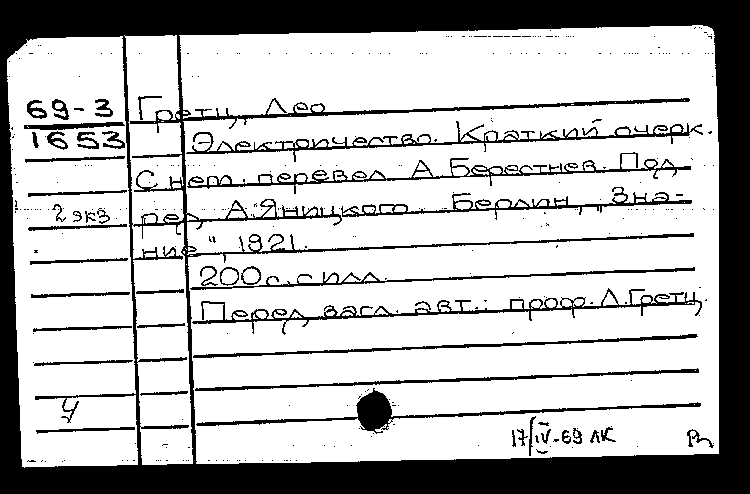 69-3 Гретц, Лео
1653 Электричество. Краткий очерк.
С нем. перевел А. Берестнев. Под
2 экз ред. А. Яницкого. Берлин, „Зна-
ние", 1921.
200 с. с илл.
Перед загл. авт.: проф. Л. Гретц
У
17/IV-69 ЛК